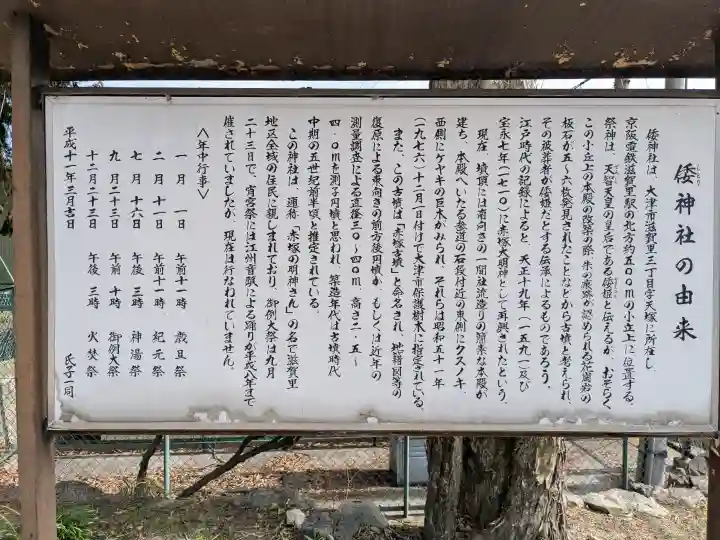 倭神社の由来
倭神社は、大津市滋賀里三丁目字天塚に所在し、
京阪電鉄滋賀里駅の北方約五〇〇mの小丘上に位置する。
祭神は、天智天皇の皇后である倭姫と伝えるが、おそらく
この小丘上の本殿の改築の際、朱の痕跡が認められる花崗岩の
板石が五〜六枚発見されたことなどから古墳と考えられ、
その被葬者が倭姫だとする伝承によるものであろう。
江戸時代の記録によると、天正十九年(一五九一)及び
宝永七年(一七一〇)に赤塚大明神として再興されたという。
現在、墳頂には南向きの一間社流造りの簡素な本殿が
建ち、本殿へいたる参道の石段付近の東側にクスノキ、
西側にケヤキの巨木がみられ、それらは昭和五十一年
(一九七六)十二月一日付けで大津市保護樹木に指定されている。
また、この古墳は「赤塚古墳」と命名され、地籍図等の
復原による東向きの前方後円墳か、もしくは近年の
測量調査による直径三〇〜四〇m、高さ二・五〜
四・〇mを測る円墳と思われ、築造年代は古墳時代
中期の五世紀前半頃と推定されている。
この神社は、通称「赤塚の明神さん」の名で滋賀里
地区全域の住民に親しまれており、御例大祭は九月
二十三日で、宵宮祭には江州音頭による踊りが平成八年まで
催されていましたが、現在は行なわれていません。
〈年中行事〉
一月 一日 午前十一時 歳旦祭
二月 十一日 午前十一時 紀元祭
七月 十六日 午後 三時 神湯祭
九月二十三日 午前 十時 御例大祭
十二月二十三日 午後 三時 火焚祭
平成十一年三月吉日
氏子一同